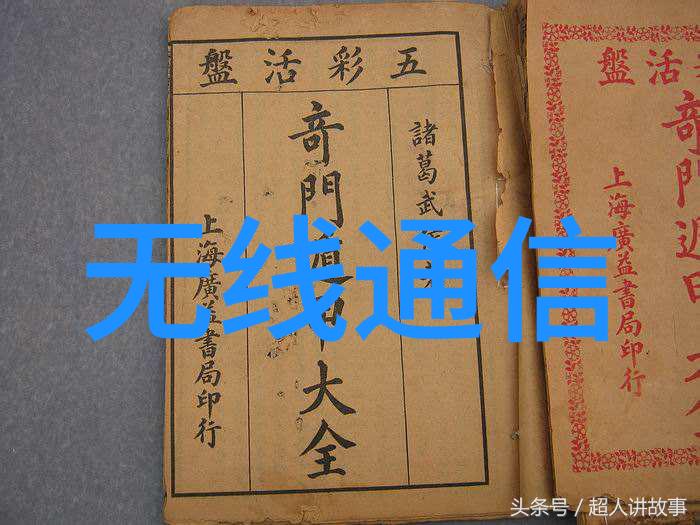 五彩活盤
諸葛武
竒門遁甲大全
上海廣益書局印行
无线通信
活盤
竒門遁
上海廣益書局印行
头条号 / 超人讲故事